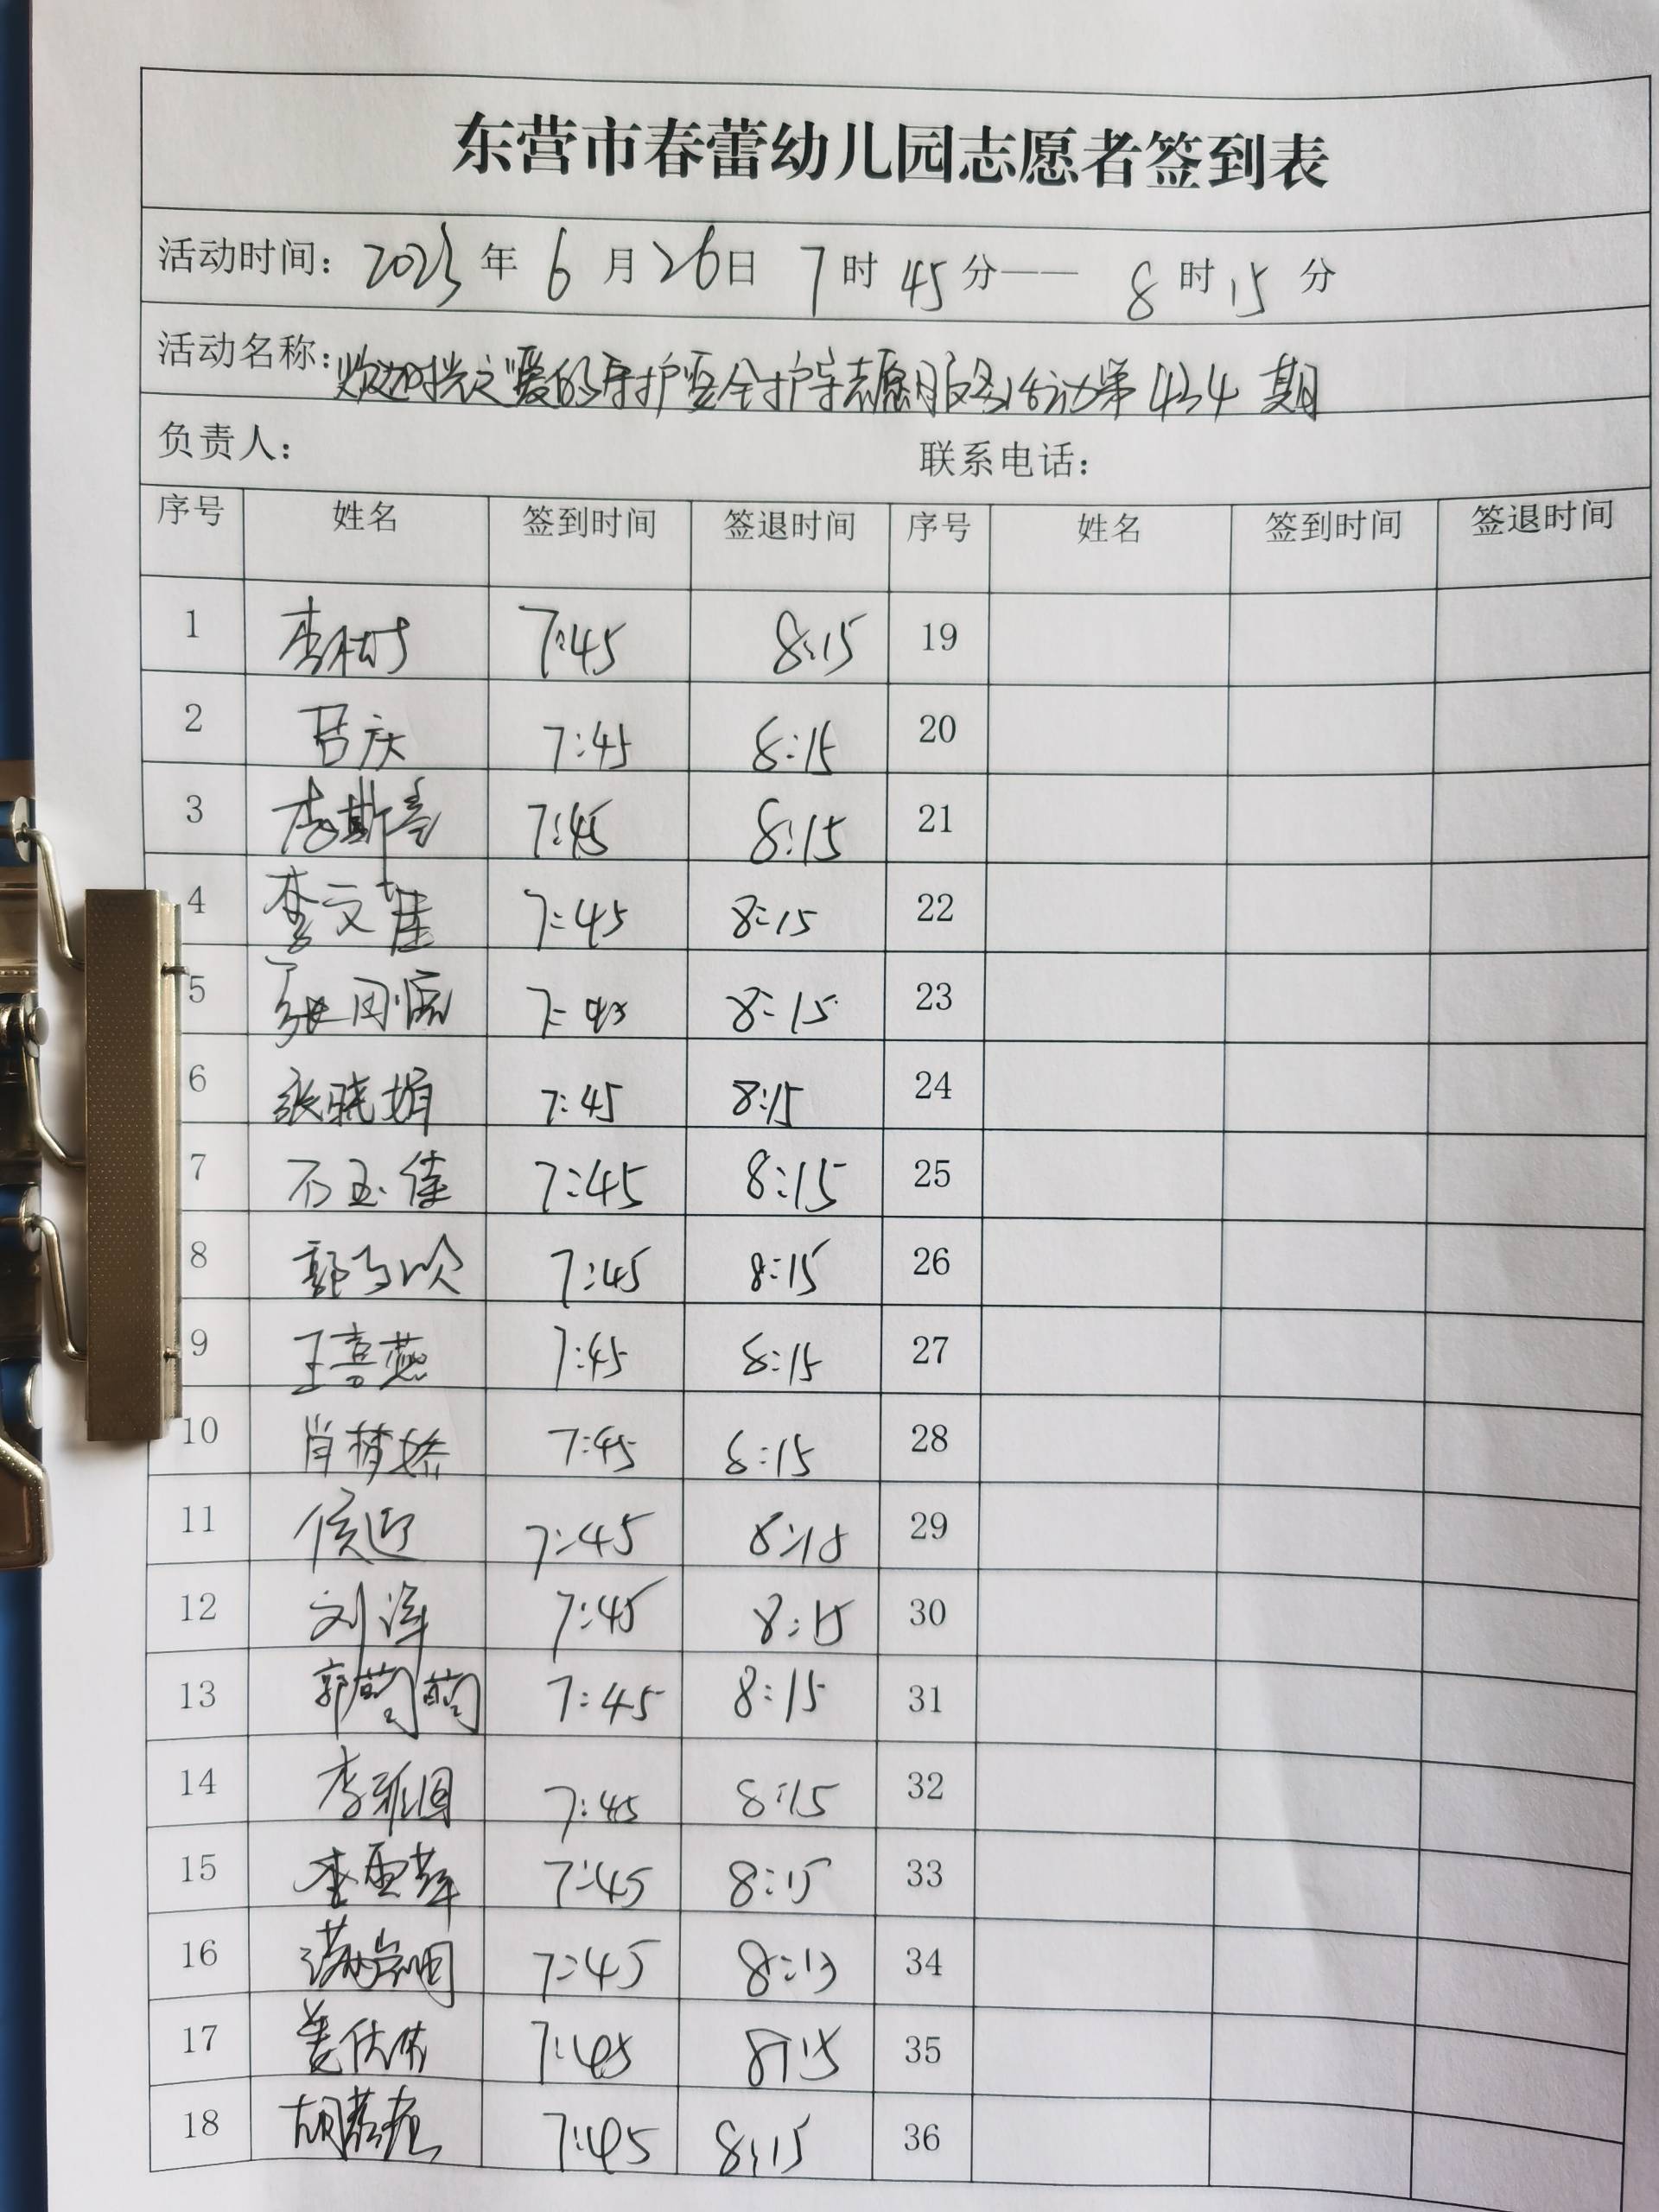 东营市春蕾幼儿园志愿者签到表
活动时间: 2023 年 6 月 26 日 7 时 45 分—— 8 时 15 分
活动名称: 时光之"爱的守护"安全护学志愿服务活动第 434 期
负责人: 联系电话:
序号 姓名 签到时间 签退时间 序号 姓名 签到时间 签退时间
1 李树 7:45 8:15 19
2 吕庆 7:45 8:15 20
3 李斯 7:45 8:15 21
4 李文 7:45 8:15 22
5 张 7:45 8:15 23
6 张晓娟 7:45 8:15 24
7 石玉佳 7:45 8:15 25
8 郭 7:45 8:15 26
9 王喜燕 7:45 8:15 27
10 肖梦娇 7:45 8:15 28
11 侯迎 7:45 8:15 29
12 刘洋 7:45 8:15 30
13 郭萄萄 7:45 8:15 31
14 李 7:45 8:15 32
15 李亚萍 7:45 8:15 33
16 7:45 8:13 34
17 姜 7:45 8:15 35
18 胡 7:45 8:15 36